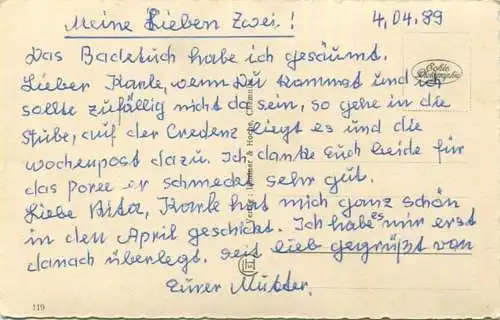 Meine Lieben Zwei! 4.04.89
Das Badetuch habe ich gesäumt.
Lieber Karle, wenn Du kommst und ich
sollte zufällig nicht da sein, so gehe in die
Stube, auf der Credenz liegt es und die
wochenpost dazu. Ich danke Euch beide für
das Poree er schmeckt sehr gut.
Liebe Rita, Karle hat mich ganz schön
in den April geschickt. Ich habe es mir erst
danach überlegt. seit lieb gegrüßt von
Eurer Mutter.
Echte Photographie
119